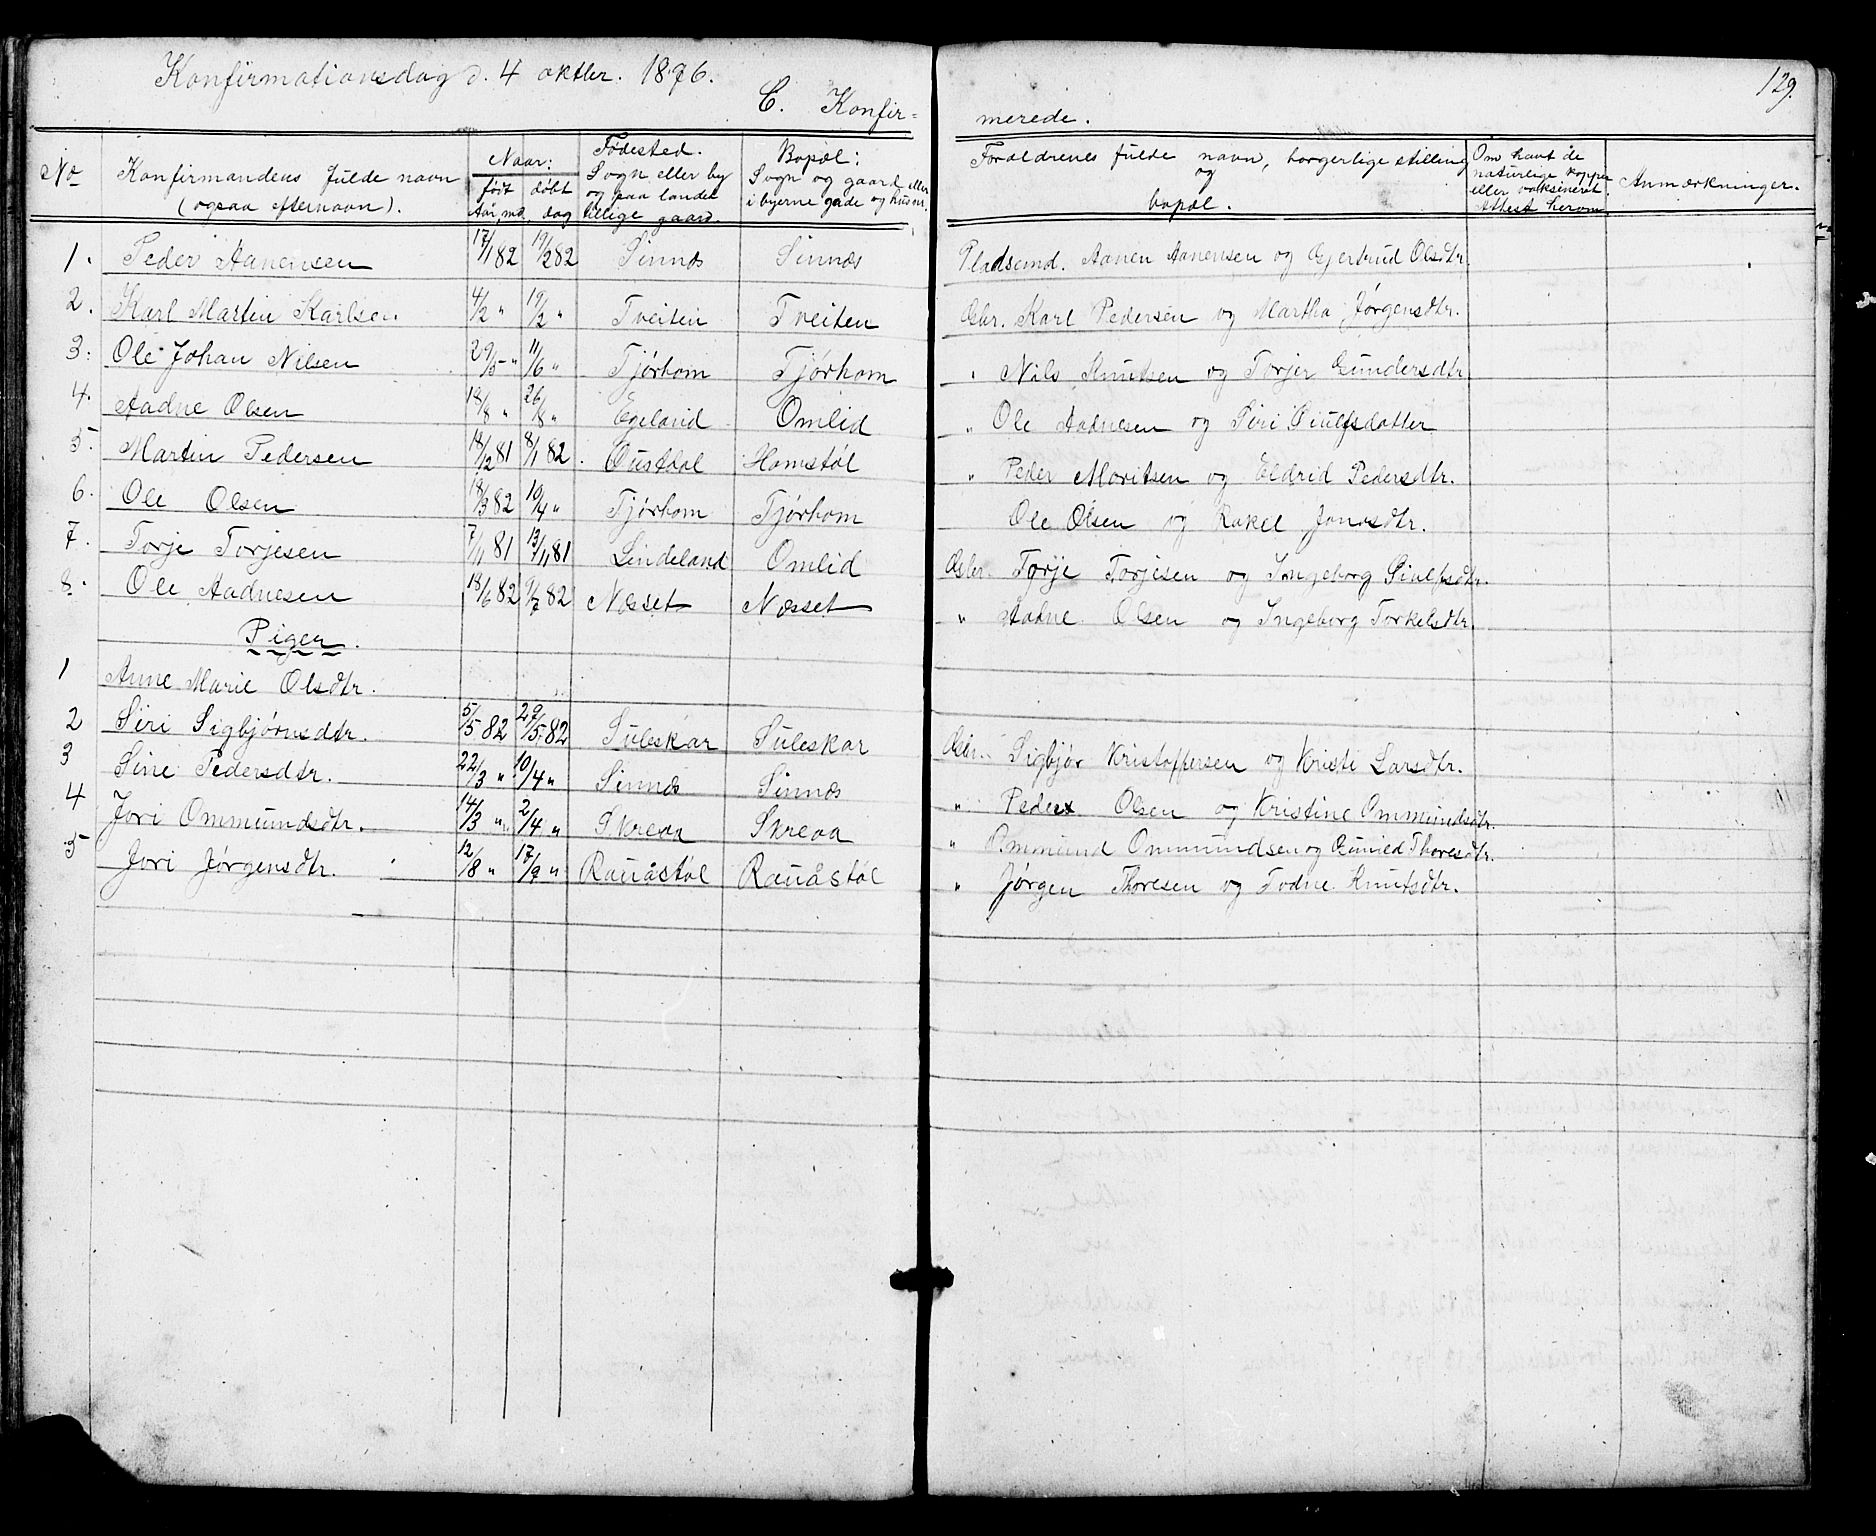 Konfirmationsdag d. 4 oktbr. 1896.
C. Konfir=
merede.
129.
No
Konfirmandens fulde navn
(ogsaa efternavn).
Naar:
født
Aar, md.
døbt
dag
Fødested.
Sogn eller by
og paa landet
tillige gaard.
Bopæl:
Sogn og gaard eller
i byerne gade og hus nr.
Forældrenes fulde navn, borgerlige stilling
og
bopæl.
Om havt de
naturlige kopper
eller vaksineret.
Attest herom
Anmærkninger.
1. Peder Aanensen 17/1 82 19/2 82 Sinnæs Sinnæs Pladsemd. Aanen Aanensen og Gjertrud Olsdtr.
2. Karl Martin Karlsen 4/2 " 19/2 " Tveiten Tveiten Gbr. Karl Pedersen og Martha Jørgensdtr.
3. Ole Johan Nilsen 29/5 " 11/6 " Tjørhom Tjørhom " Nils Knutsen og Torjer Gundersdtr.
4. Aadne Olsen 18/8 " 26/8 " Egeland Omlid " Ole Aadnesen og Siri Siulfsdatter
5. Martin Pedersen 18/12 81 8/1 82. Ousdal Homstøl " Peder Moritsen og Eldrid Pedersdtr.
6. Ole Olsen 18/3 82 10/4 " Tjørhom Tjørhom Ole Olsen og Rakel Jonasdtr.
7. Torje Torjesen 7/11 81 13/11 81 Lindeland Omlid Gbr. Torje Torjesen og Ingeborg Siulfsdtr.
8. Ole Aadnesen 18/6 82 9/7 82 Næsset Næsset " Aadne Olsen og Ingeborg Torkelsdtr.
Piger.
1 Anne Marie Olsdtr.
2 Siri Sigbjørnsdtr. 5/5 82 29/5 82 Suleskar Suleskar Gbr. Sigbjør Kristoffersen og Kristi Larsdtr.
3 Sine Pedersdtr. 22/3 " 10/4 " Sinnæs Sinnæs " Peder Olsen og Kristine Ommundsdtr.
4 Jori Ommundsdtr. 14/3 " 2/4 " Skreaa Skreaa " Ommund Ommundsen og Gunild Thoresdtr.
5 Jori Jørgensdtr. 12/8 " 17/9 " Rauåstøl Rauåstøl " Jørgen Thoresen og Todne Knutsdtr.